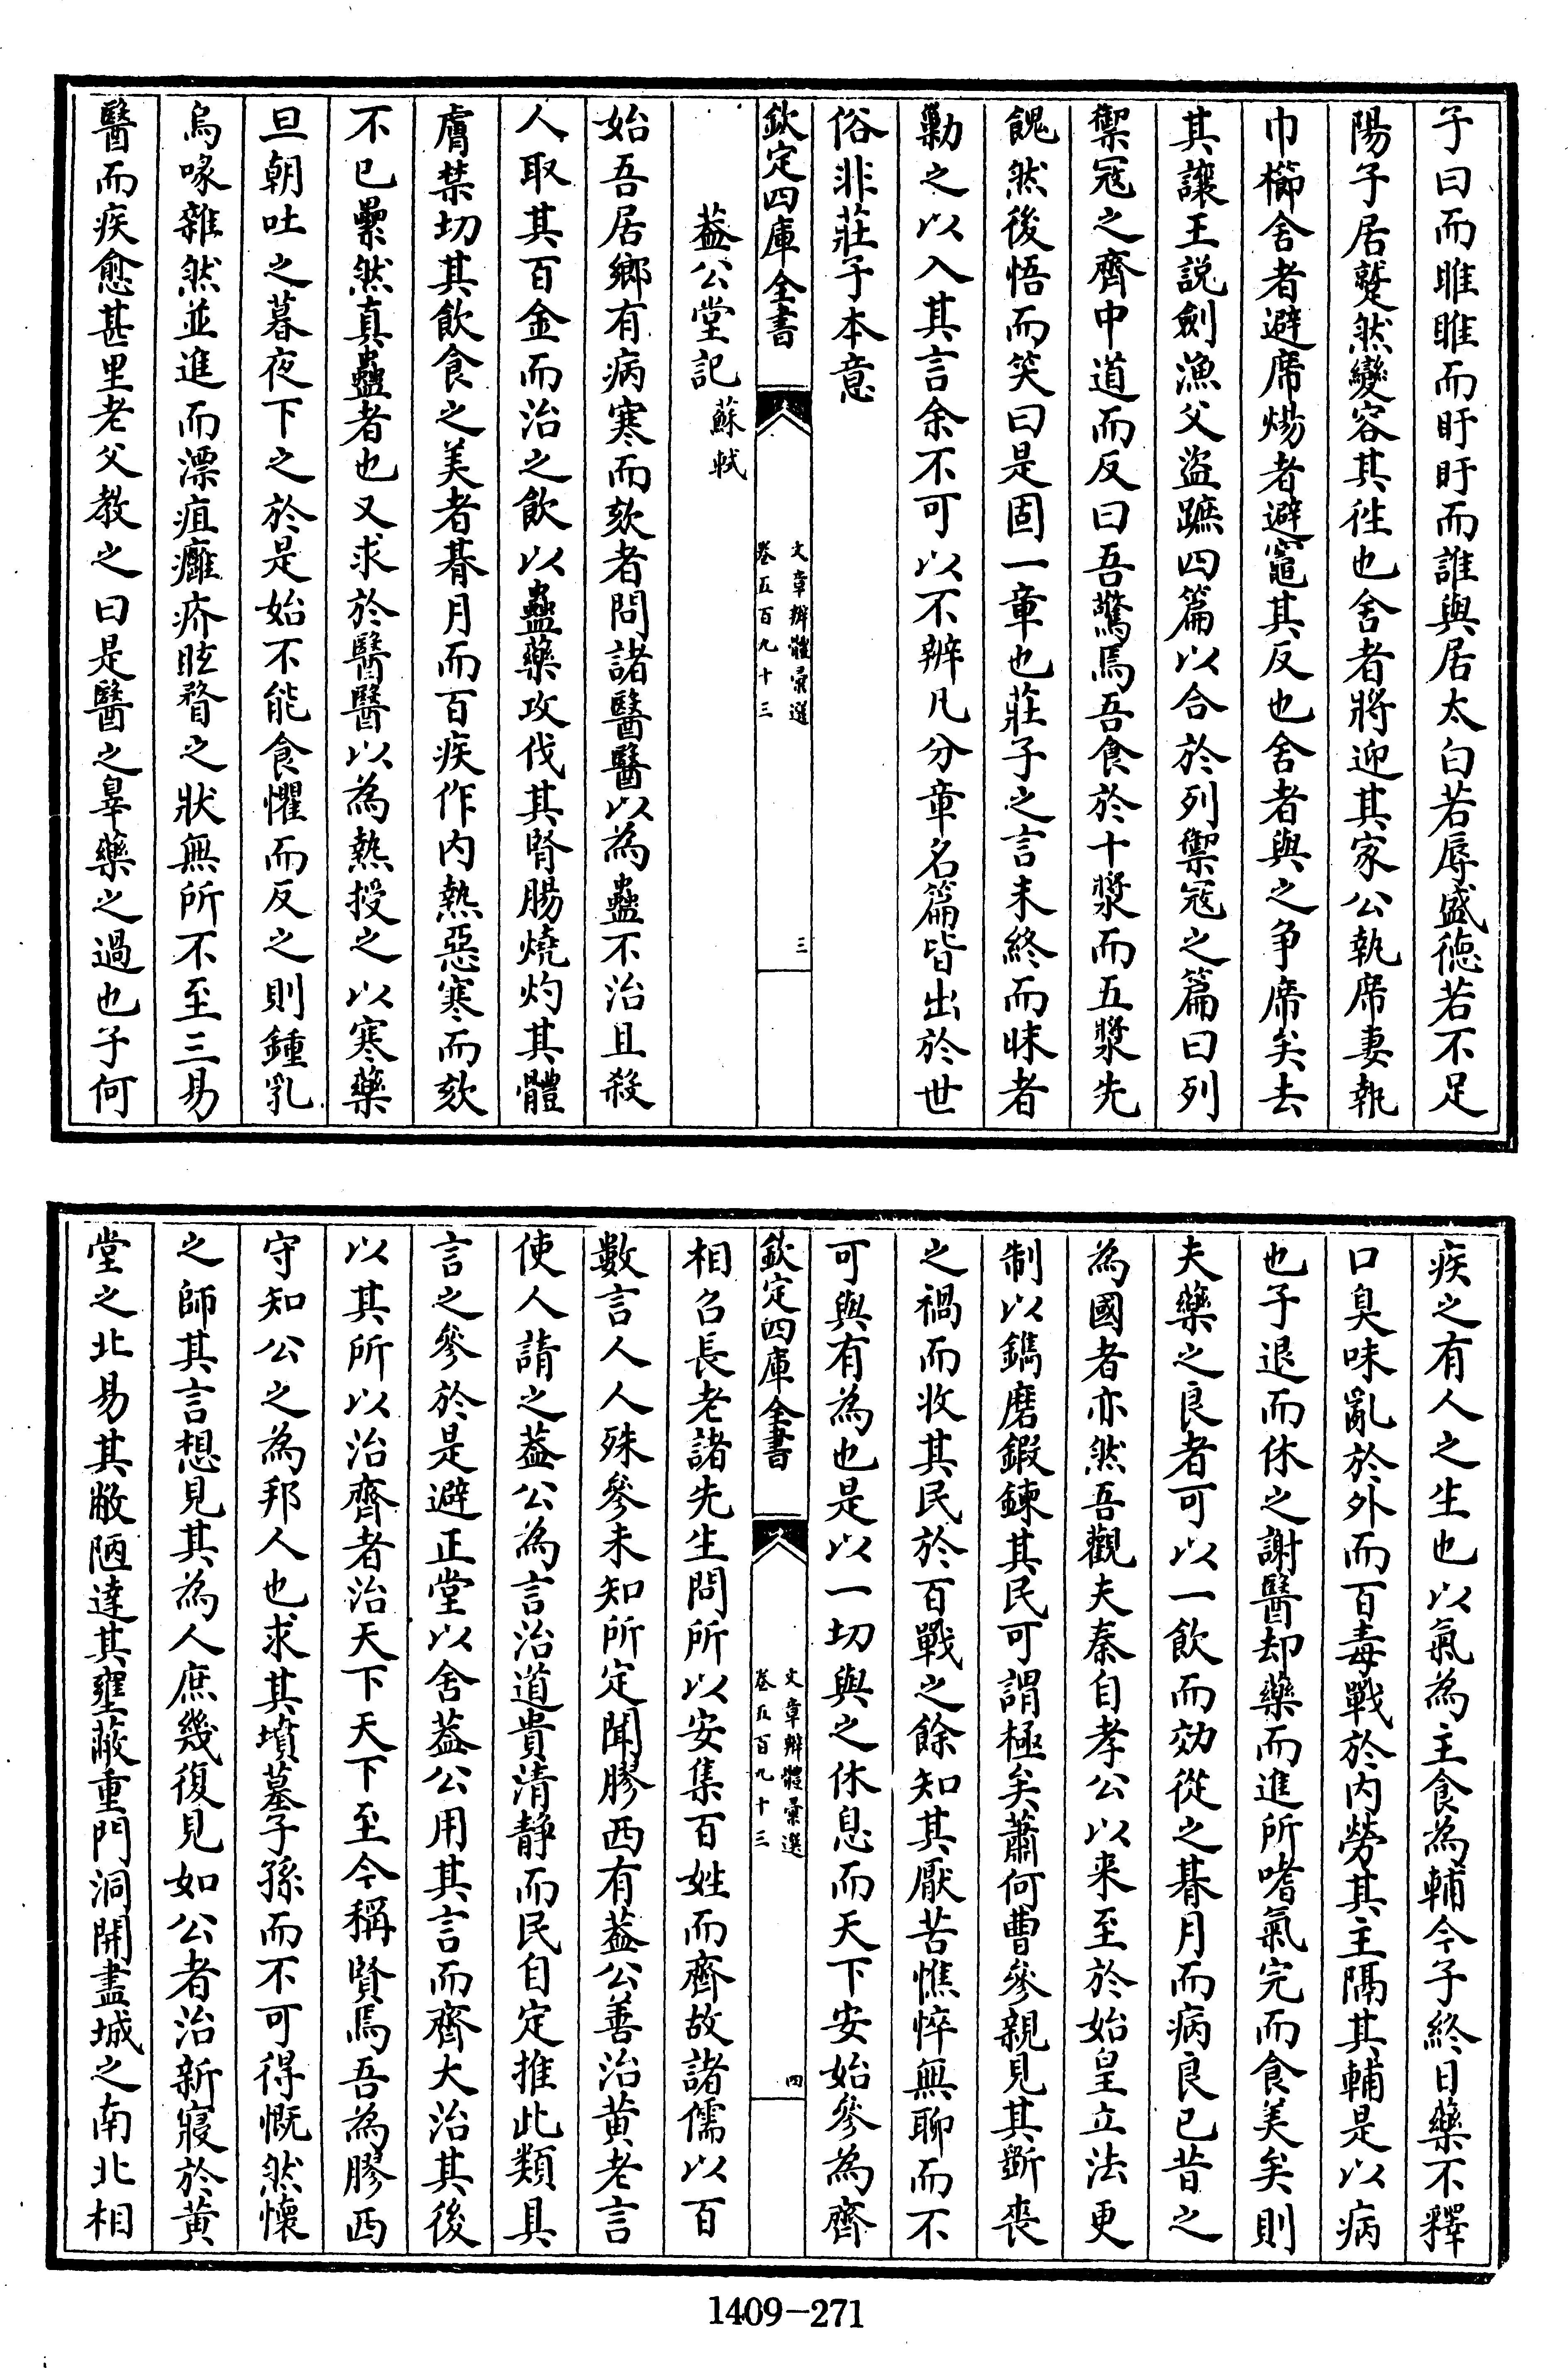 子曰而睢睢而盱盱而誰與居太白若辱盛德若不足
陽子居蹵然變容其徃也舍者將迎其家公執席妻執
巾櫛舍者避席煬者避竈其反也舍者與之争席矣去
其讓王說劍漁父盜蹠四篇以合於列禦冦之篇曰列
禦冦之齊中道而反曰吾驚焉吾食於十漿而五漿先
餽然後悟而笑曰是固一章也莊子之言未終而昧者
勦之以入其言余不可以不辨凡分章名篇皆出於世
俗非莊子本意
欽定四庫全書
文章辨體彙選
卷五百九十三
三
葢公堂記 蘇軾
始吾居鄉有病寒而欬者問諸醫醫以為蠱不治且殺
人取其百金而治之飲以蠱藥攻伐其腎腸燒灼其體
膚禁切其飲食之美者朞月而百疾作內熱惡寒而欬
不已纍然真蠱者也又求於醫醫以為熱授之以寒藥
旦朝吐之暮夜下之於是始不能食懼而反之則鍾乳
烏喙雜然並進而漂疽癰疥眩瞀之狀無所不至三易
醫而疾愈甚里老父教之曰是醫之辠藥之過也子何
疾之有人之生也以氣為主食為輔今子終日藥不釋
口臭味亂於外而百毒戰於內勞其主隔其輔是以病
也子退而休之謝醫却藥而進所嗜氣完而食美矣則
夫藥之良者可以一飲而効從之朞月而病良已昔之
為國者亦然吾觀夫秦自孝公以来至於始皇立法更
制以鐫磨鍜鍊其民可謂極矣蕭何曹參親見其斲喪
之禍而收其民於百戰之餘知其厭苦憔悴無聊而不
可與有為也是以一切與之休息而天下安始參為齊
欽定四庫全書
文章辨體彙選
卷五百九十三
四
相召長老諸先生問所以安集百姓而齊故諸儒以百
數言人人殊參未知所定聞膠西有葢公善治黄老言
使人請之葢公為言治道貴清静而民自定推此類具
言之參於是避正堂以舍葢公用其言而齊大治其後
以其所以治齊者治天下天下至今稱賢焉吾為膠西
守知公之為邦人也求其墳墓子孫而不可得慨然懷
之師其言想見其為人庶幾復見如公者治新寢於黄
堂之北易其敝陋達其壅蔽重門洞開盡城之南北相
1409-271